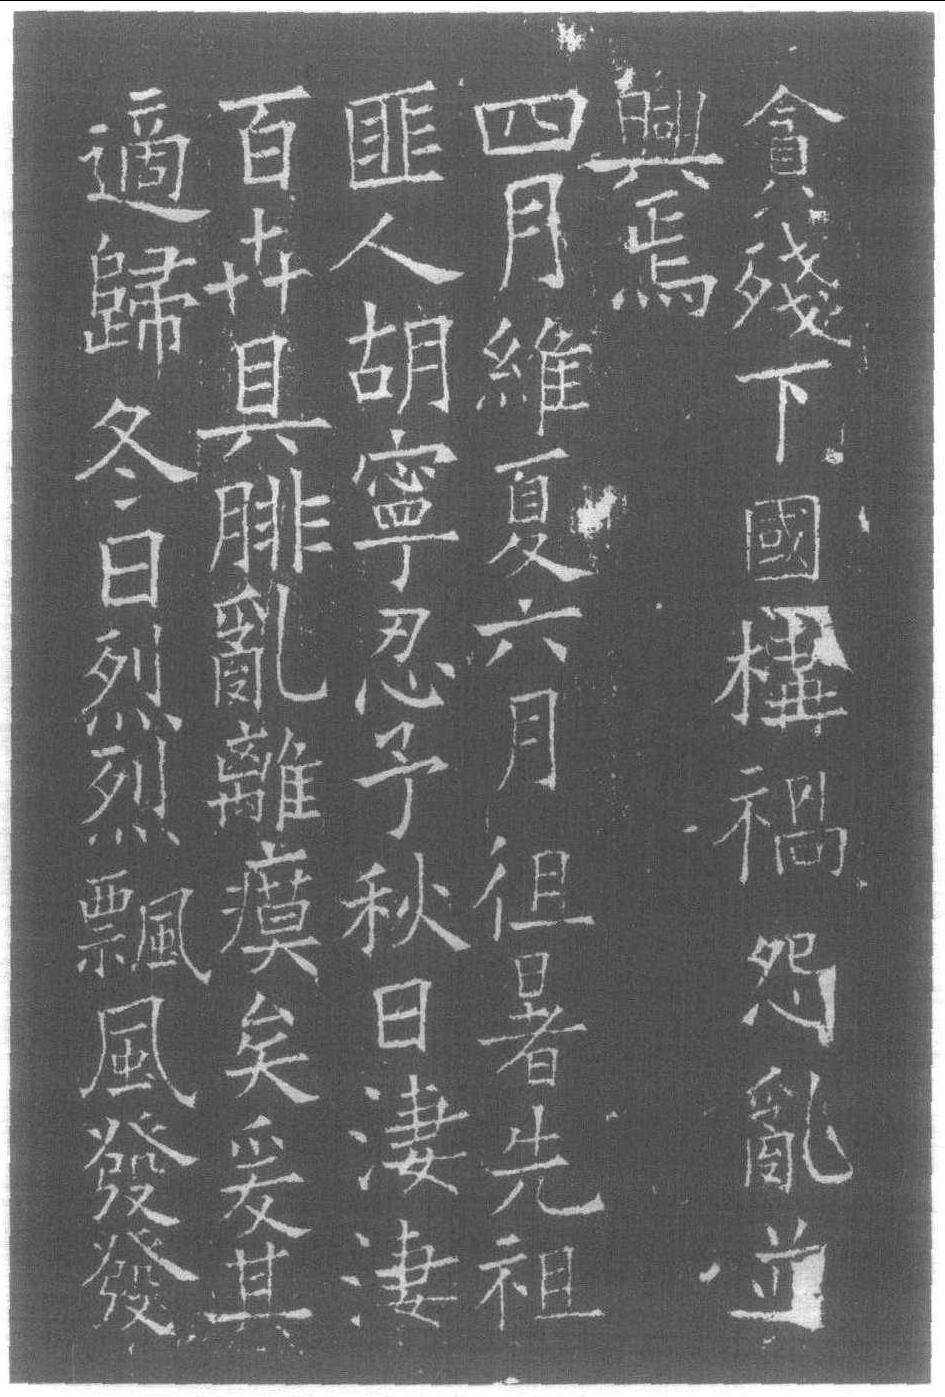 貪殘下國構禍怨亂並
興焉
四月維夏六月徂暑先祖
匪人胡寧忍予秋日淒淒
百卉具腓亂離瘼矣爰其
適歸冬日烈烈飄風發發